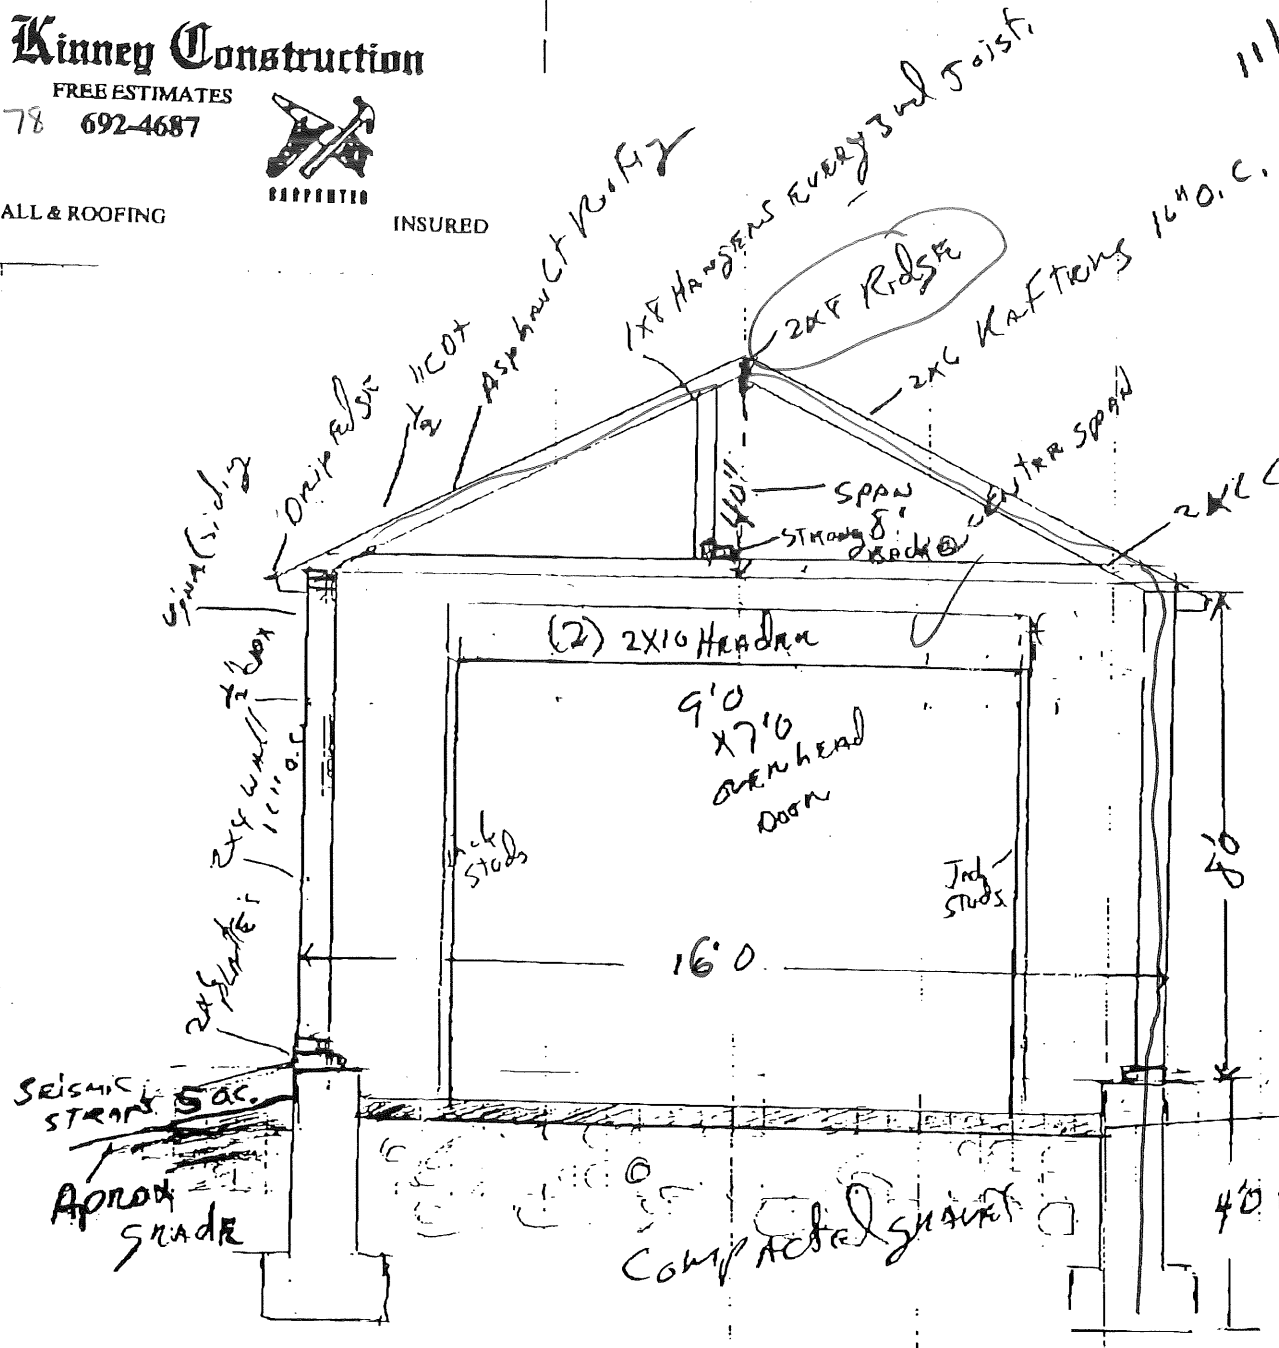 Kinney Construction
FREE ESTIMATES
78 692-4687
CARPENTER
ALL & ROOFING
INSURED
111
1x8 HANGERS EVERY 3nd Joist.
2x8 RidgE
2x6 RAFTERS 16" O.C.
ASphAuLt RooFiNg
1/2 "CDX
Drip EdgE
Vinal Siding
40"
SPAN
8'
STRONG BACK @ CENTER SPAN
(2) 2X10 HEADER
9'0
X7'0
OVERhEAD
DOOR
1/2" CDX
2x4 WALL
16" o.c.
Jack
Studs
Jack
Studs
8'0
16'0
2x6 PLATE
SEiSMiC
STRAPS 5 o.c.
Aprox
gRADE
CoMpActEd gRAVEL
4'0